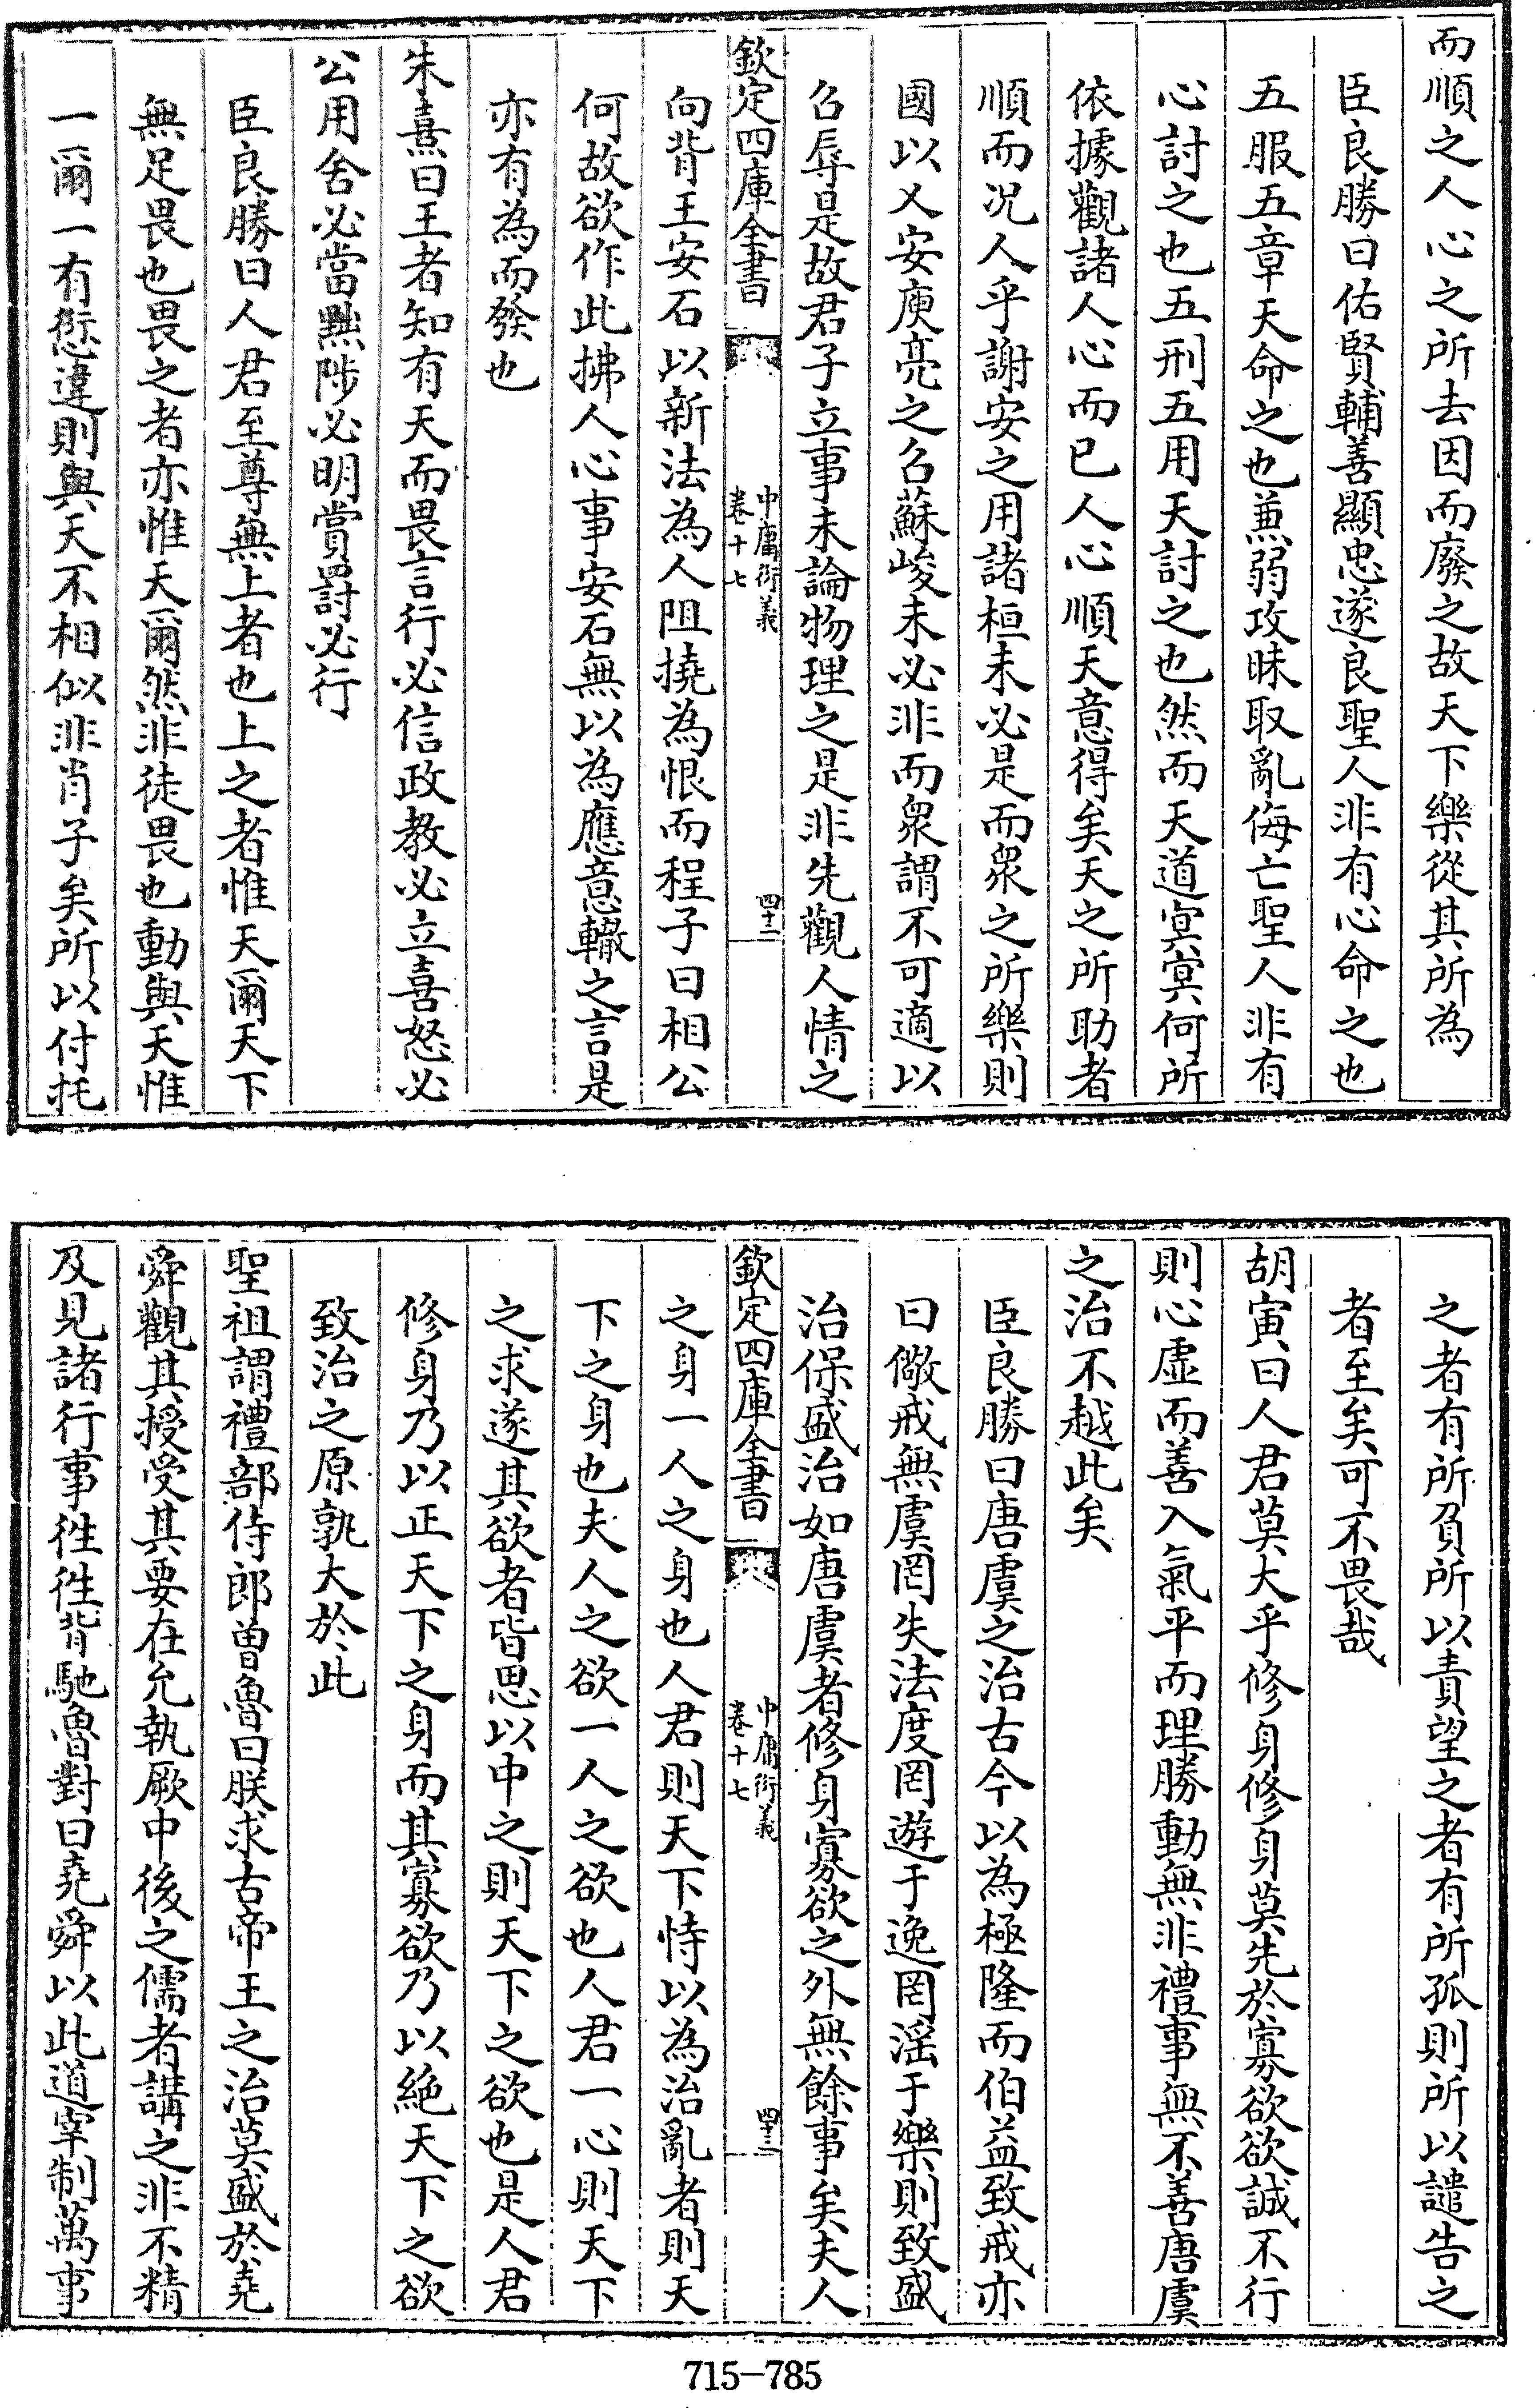 而順之人心之所去因而廢之故天下樂從其所為
臣良勝曰佑賢輔善顯忠遂良聖人非有心命之也
五服五章天命之也兼弱攻昧取亂侮亡聖人非有
心討之也五刑五用天討之也然而天道㝠㝠何所
依據觀諸人心而已人心順天意得矣天之所助者
順而况人乎謝安之用諸桓未必是而衆之所樂則
國以乂安庾亮之召蘇峻未必非而衆謂不可適以
召辱是故君子立事未論物理之是非先觀人情之
欽定四庫全書
中庸衍義
卷十七
四十二
向背王安石以新法為人阻撓為恨而程子曰相公
何故欲作此拂人心事安石無以為應意轍之言是
亦有為而發也
朱熹曰王者知有天而畏言行必信政教必立喜怒必
公用舍必當黜陟必明賞罰必行
臣良勝曰人君至尊無上者也上之者惟天爾天下
無足畏也畏之者亦惟天爾然非徒畏也動與天惟
一爾一有愆違則與天不相似非肖子矣所以付托
之者有所負所以責望之者有所孤則所以譴告之
者至矣可不畏哉
胡寅曰人君莫大乎修身修身莫先於寡欲欲誠不行
則心虛而善入氣平而理勝動無非禮事無不善唐虞
之治不越此矣
臣良勝曰唐虞之治古今以為極隆而伯益致戒亦
曰儆戒無虞罔失法度罔遊于逸罔淫于樂則致盛
治保盛治如唐虞者修身寡欲之外無餘事矣夫人
欽定四庫全書
中庸衍義
卷十七
四十三
之身一人之身也人君則天下恃以為治亂者則天
下之身也夫人之欲一人之欲也人君一心則天下
之求遂其欲者皆思以中之則天下之欲也是人君
修身乃以正天下之身而其寡欲乃以絶天下之欲
致治之原孰大於此
聖祖謂禮部侍郎曾魯曰朕求古帝王之治莫盛於堯
舜觀其授受其要在允執厥中後之儒者講之非不精
及見諸行事徃徃背馳魯對曰堯舜以此道宰制萬事
715-785